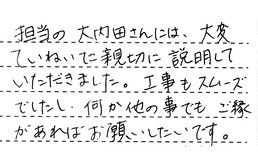 担当の大内田さんには、大変
ていねいでに親切に説明して
いただきました。工事もスムーズ
でしたし、何か他の事でもご縁
があればお願いしたいです。